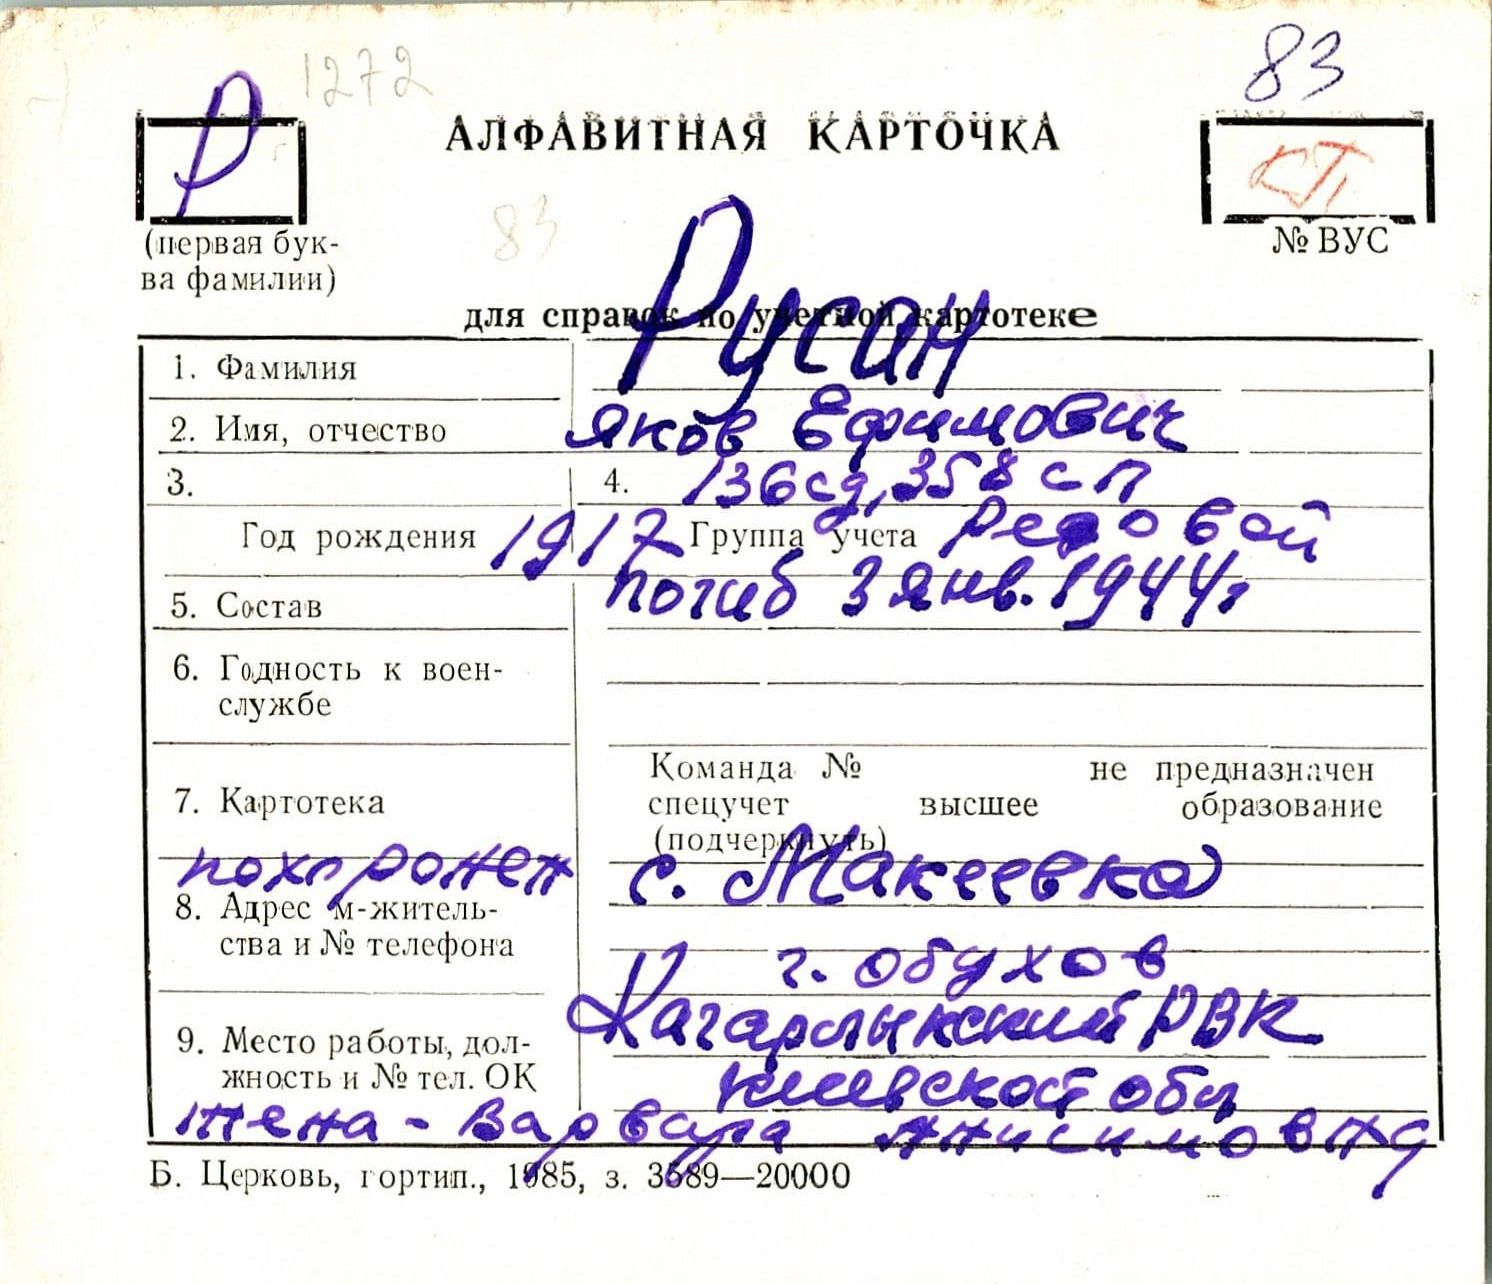 1272
83
Р
АЛФАВИТНАЯ КАРТОЧКА
КП
(первая бук-
ва фамилии)
83
№ ВУС
для справок по учетной картотеке
1. Фамилия Русан
2. Имя, отчество Яков Ефимович
3. 4. 136 сд, 358 сп
Год рождения 1917 Группа учета рядовой
погиб 3 янв. 1944 г
5. Состав
6. Годность к воен-
службе
Команда № не предназначен
7. Картотека спецучет высшее образование
(подчеркнуть)
похоронен с. Макеевка
8. Адрес м-житель-
ства и № телефона
г. Обухов
Кагарлыкский РВК
9. Место работы, дол-
жность и № тел. ОК
киевской обл
жена - Варвара Анисимовна
Б. Церковь, гортип., 1985, з. 3689—20000